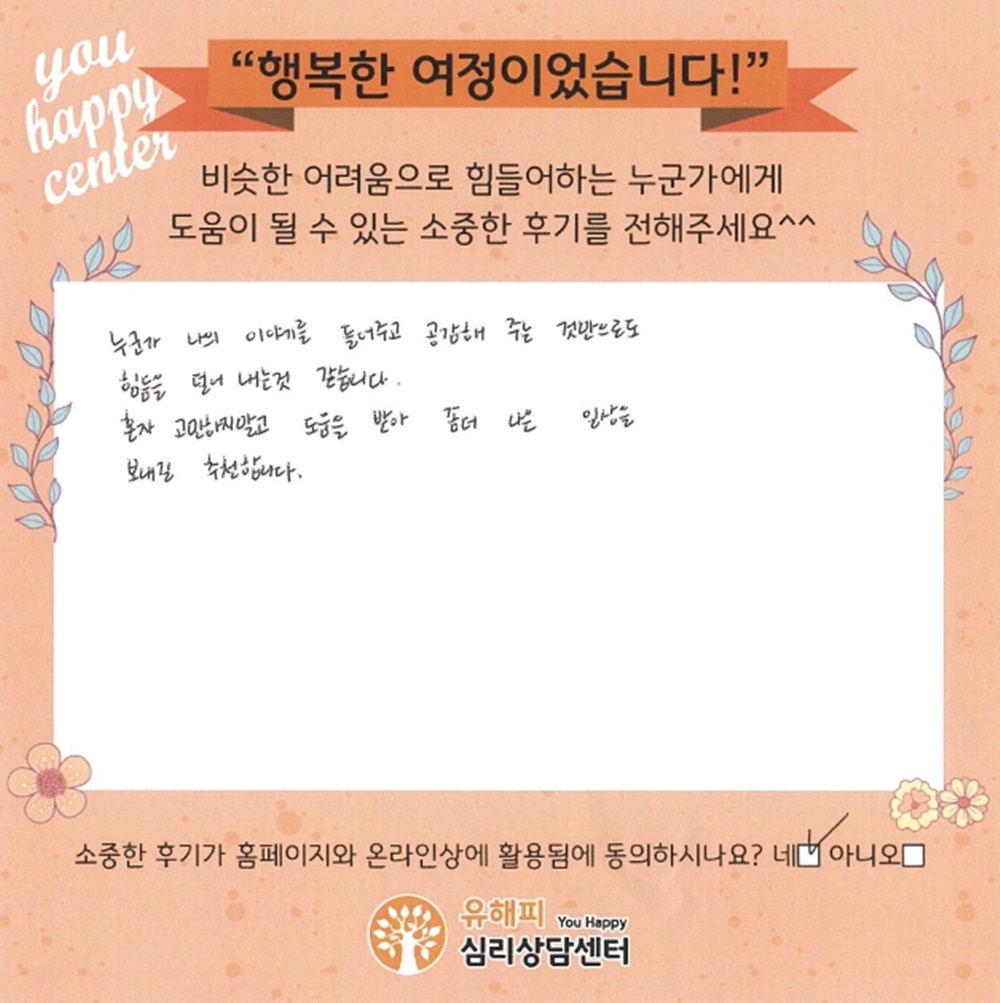 you
happy
center
“행복한 여정이었습니다!”
비슷한 어려움으로 힘들어하는 누군가에게
도움이 될 수 있는 소중한 후기를 전해주세요^^
누군가 나의 이야기를 들어주고 공감해 주는 것만으로도
힘듦을 덜어 내는것 같습니다.
혼자 고민하지말고 도움을 받아 좀더 나은 일상을
보내길 추천합니다.
소중한 후기가 홈페이지와 온라인상에 활용됨에 동의하시나요? 네 아니오
유해피 You Happy
심리상담센터